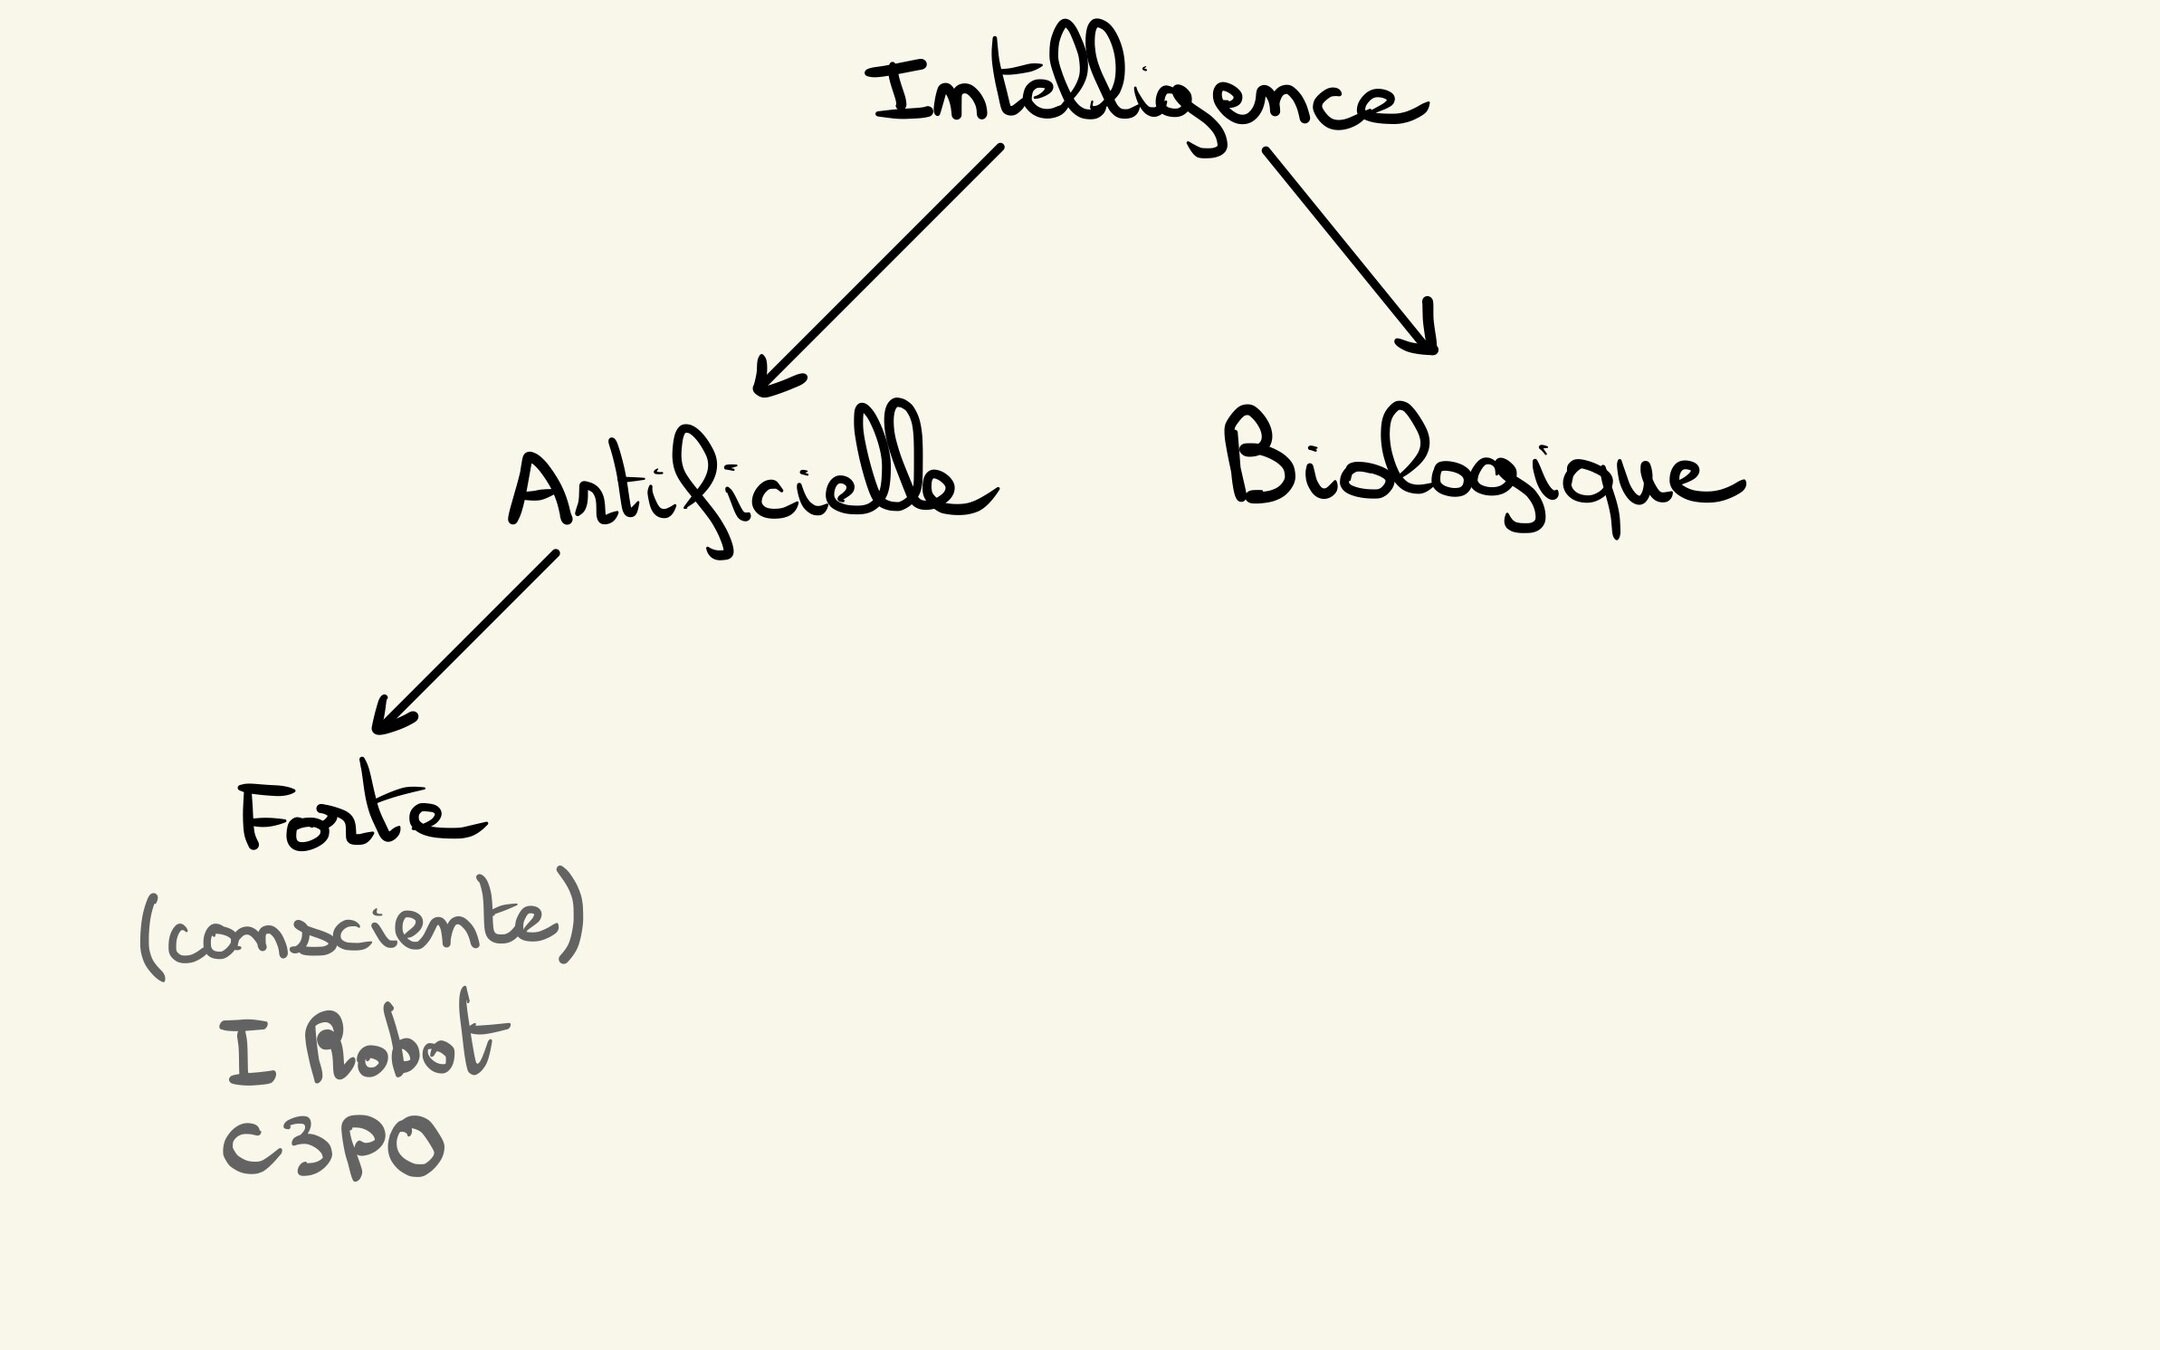 Intelligence
Artificielle
Biologique
Forte
(consciente)
I Robot
C3PO